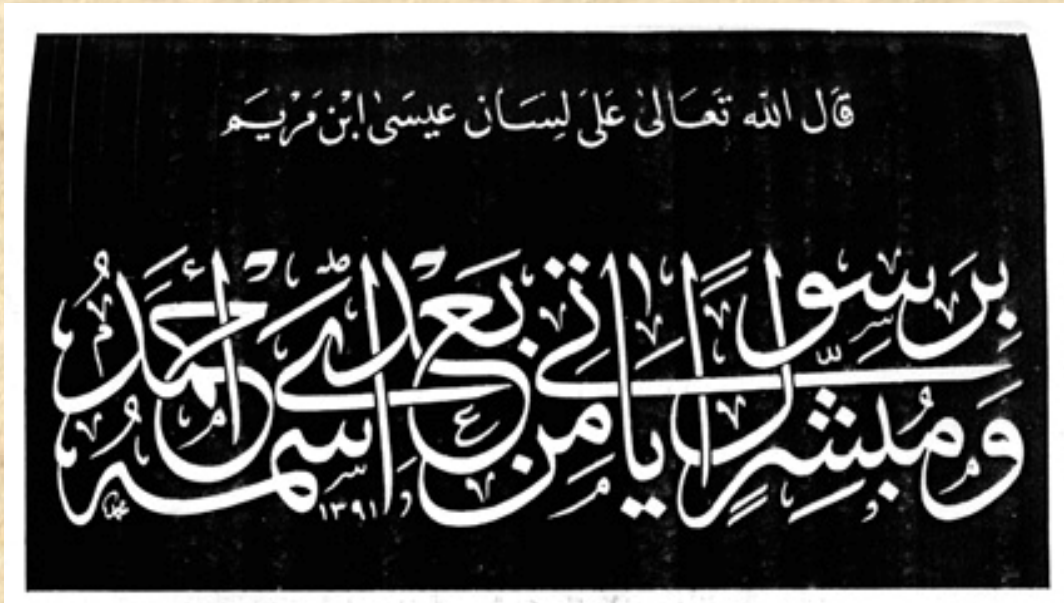 قَالَ اللّٰه تَعَالىٰ عَلىٰ لِسَان عيسَىٰ ابْن مَرْيَم
وَمُبَشِّرًا بِرَسُولٍ يَأْتِي مِنْ بَعْدِي اسْمُهُ أَحْمَدُ
١٣٩١